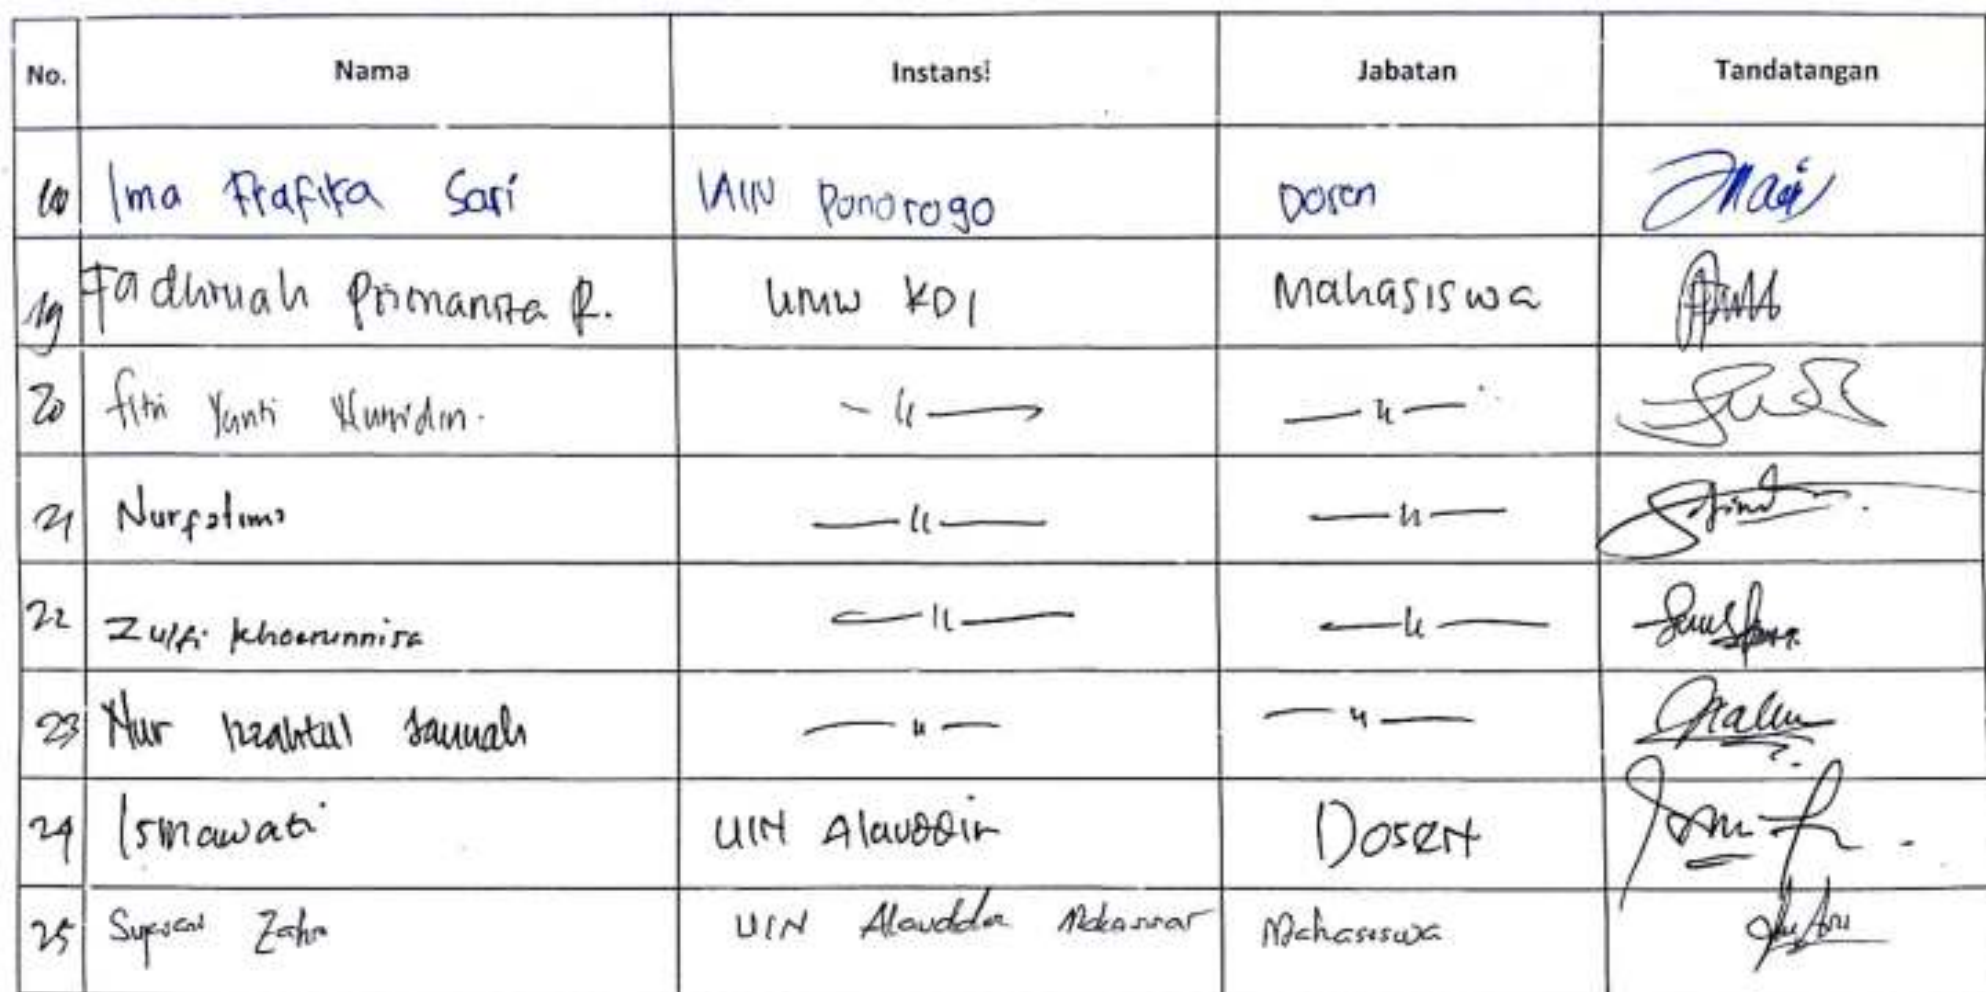 No. Nama Instansi Jabatan Tandatangan
Ima Frafika Sari IAIN Ponorogo Dosen
19 Fadhilah Primanita R. UMW KDI Mahasiswa
20 Fitri Yanti — 〃 — — 〃 —
21 Nurfatima — 〃 — — 〃 —
22 Zulfi Khoerunnisa — 〃 — — 〃 —
23 Nur Izzahtul Jannah — 〃 — — 〃 —
24 Ismawati UIN Alauddin Dosen
25 Zahra UIN Alauddin Makassar Mahasiswa